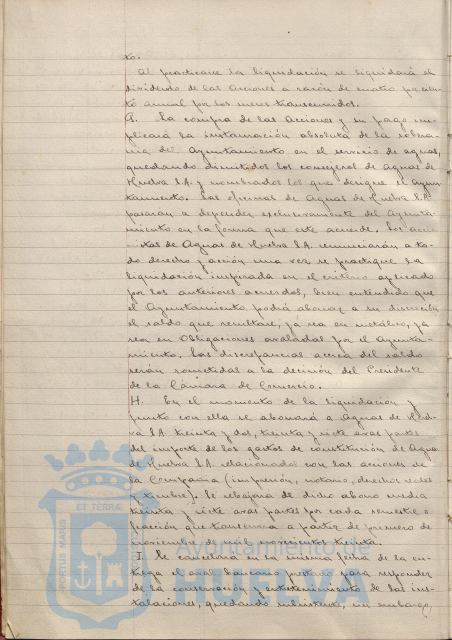 to.
Al practicarse la liquidación se liquidará el
dividendo de las acciones a razón de cuatro por cien-
to anual por los meses transcurridos.
G. La compra de las acciones y su pago im-
plicará la instauración absoluta de la sobera-
nia del Ayuntamiento en el servicio de aguas,
quedando dimitidos los consejeros de Aguas de
Huelva S.A. y nombrados los que designe el Ayun-
tamiento. Las oficinas de Aguas de Huelva S.A.
pasarán a depender exclusivamente del Ayunta-
miento en la forma que este acuerde. Los accio-
nistas de Aguas de Huelva S.A. renunciarán a to-
do derecho y acción una vez se practique la
liquidación inspirada en el criterio aplicado
por los anteriores acuerdos, bien entendido que
el Ayuntamiento podrá abonar a su discreción
el saldo que resultare, ya sea en metálico, ya
sea en Obligaciones avaladas por el Ayunta-
miento. Las discrepancias acerca del saldo
serán sometidas a la decisión del Presidente
de la Cámara de Comercio.
H. En el momento de la liquidación y
junto con ella se abonará a Aguas de Huel-
va S.A. treinta y dos, treinta y siete avas partes
del importe de los gastos de constitución de Aguas
de Huelva S.A. relacionados con las acciones de
la Compañía (impresión, notario, derechos reales
y timbre). Se rebajará de dicho abono media
treinta y siete avas partes por cada semestre o
fracción que transcurra a partir de primero de
noviembre de mil novecientos treinta.
I. Se cancelará en la misma fecha de la en-
trega el aval bancario prestado para responder
de la conservación y entretenimiento de las ins-
talaciones, quedando subsistente, sin embargo,
PORTUS MARIS
ET TERRA
Ayuntamiento de
HUELVA